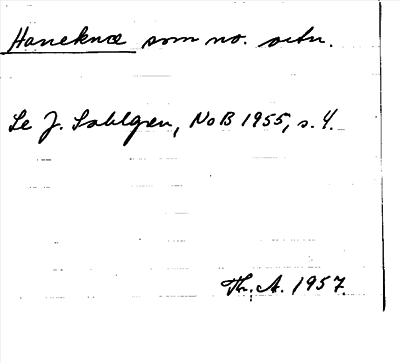 Haneknæ som no. octn.
Se J. Sahlgren, NoB 1955, s. 4.
Th. A. 1957.